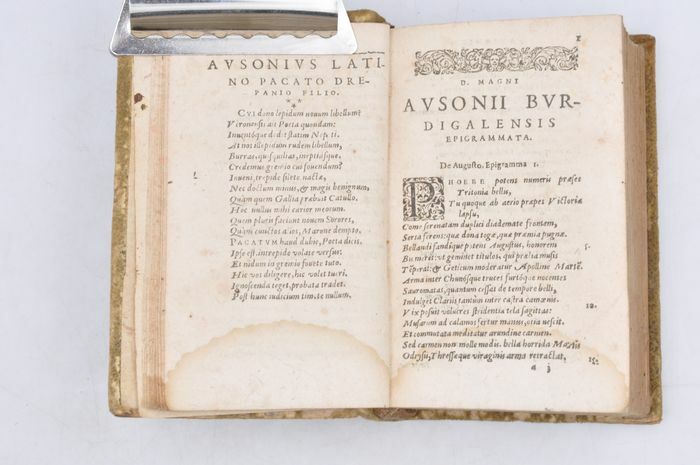 AVSONIVS LATI-
NO PACATO DRE-
PANIO FILIO.
CVI dono lepidum nouum libellum?
Veronensis ait Poëta quondam:
Inuentóque dedit statim Nepoti.
At nos illepidum rudem libellum,
Burras, quisquilias, ineptiasque,
Credemus gremio cui fouendum?
Inueni, trepidæ silete nugæ,
Nec doctum minus, & magis benignum,
Quàm quem Gallia præbuit Catullo.
Hoc nullus mihi carior meorum.
Quem pluris faciunt nouem Sorores,
Quàm cunctos alios, Marone dempto.
PACATVM haud dubiè, Poëta dicis.
Ipse est. intrepidè volate versus.
Et nidum in gremio fouete tuto.
Hic vos diligere, hic volet tueri.
Ignoscenda teget, probata tradet.
Post hunc iudicium timete nullum.
1
D. MAGNI
AVSONII BVR-
DIGALENSIS
EPIGRAMMATA.
De Augusto. Epigramma 1.
PHOEBE potens numeris præses
Tritonia bellis,
Tu quoque ab aerio præpes Victoria
lapsu,
Come serenatam duplici diademate frontem,
Serta ferens: quæ dona togæ, quæ præmia pugnæ.
Bellandi fandique potens Augustus, honorem
Bis meret: vt geminet titulos, qui prælia musis
Têperat: & Geticum moderatur Apolline Martê.
Arma inter Chunósque truces furtóque nocentes
Sauromatas, quantum cessat de tempore belli,
Indulget Clariis tantum inter castra camœnis.
Vix posuit volucres stridentia tela sagittas:
Musarum ad calamos fertur manus, otia nescit.
Et commutata meditatur arundine carmen.
Sed carmen non molle modis. bella horrida Martis
Odrysii, Thressæque viraginis arma retractat,
5.
10.
15.
a j